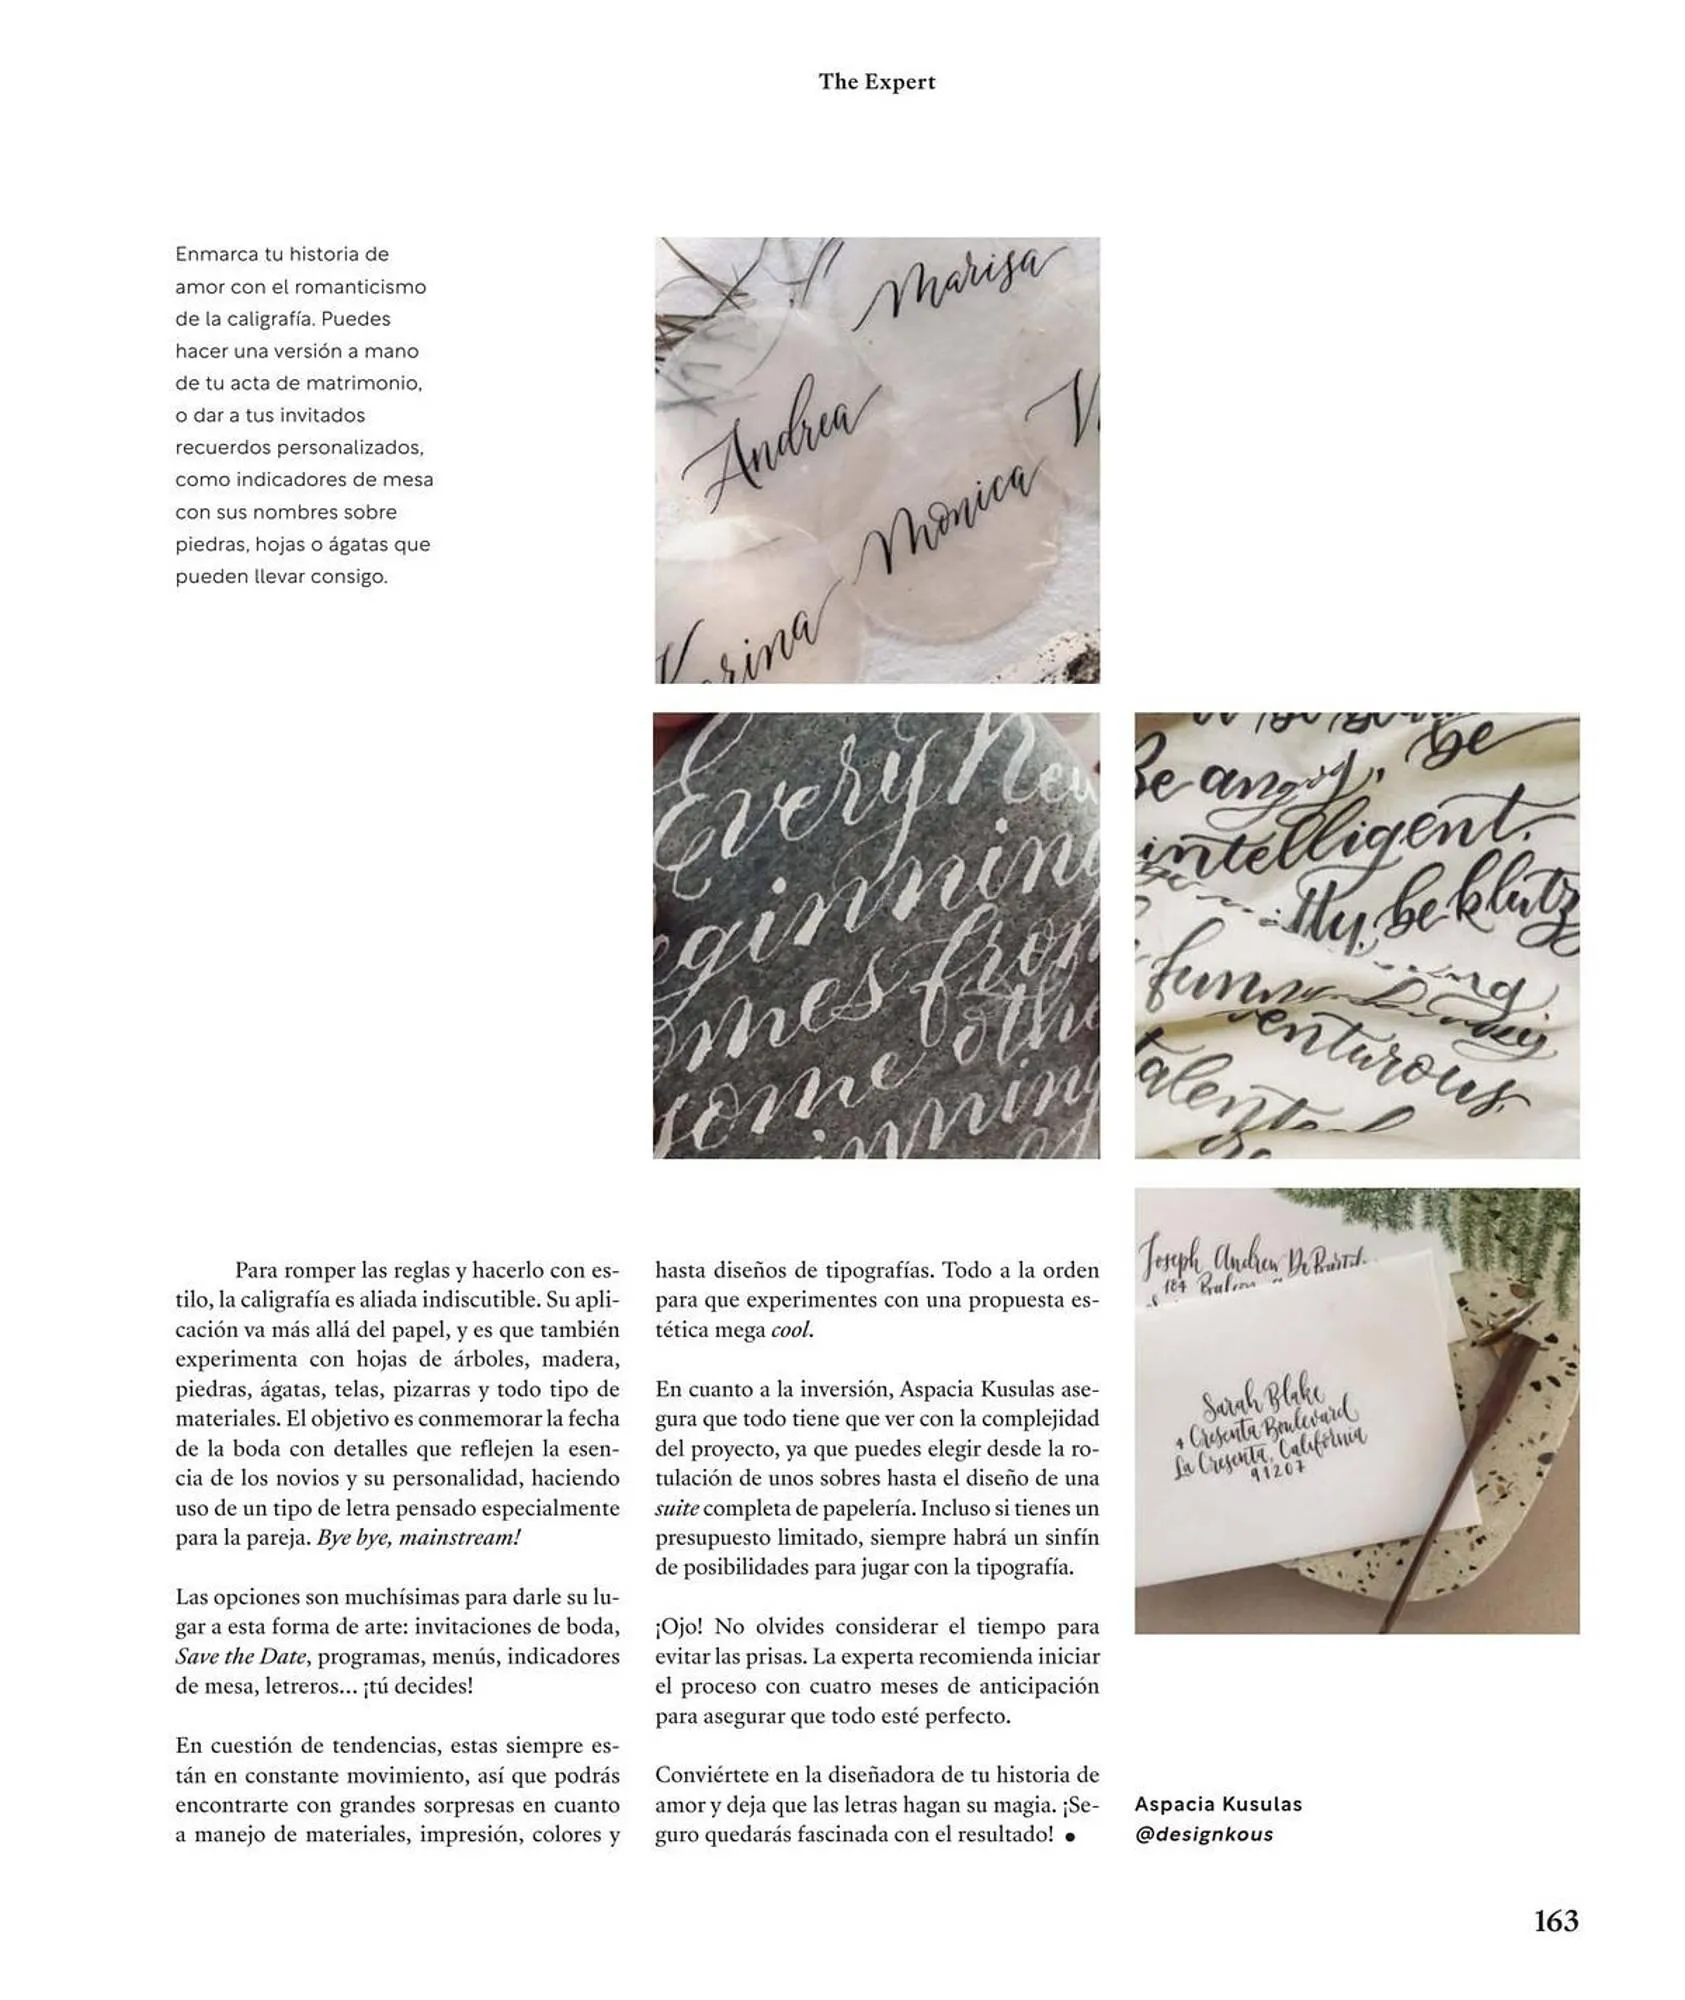 The Expert
Enmarca tu historia de
amor con el romanticismo
de la caligrafía. Puedes
hacer una versión a mano
de tu acta de matrimonio,
o dar a tus invitados
recuerdos personalizados,
como indicadores de mesa
con sus nombres sobre
piedras, hojas o ágatas que
pueden llevar consigo.
Marisa
Andrea
Monica
Karina
Every New
eginning
omes from
some othe
inning
Be angry, be
intelligent.
be klutz
funny
venturous.
talented
Joseph Andrew De
184
Sarah Blake
4 Cresenta Boulevard
La Cresenta, California
91207
Para romper las reglas y hacerlo con es-
tilo, la caligrafía es aliada indiscutible. Su apli-
cación va más allá del papel, y es que también
experimenta con hojas de árboles, madera,
piedras, ágatas, telas, pizarras y todo tipo de
materiales. El objetivo es conmemorar la fecha
de la boda con detalles que reflejen la esen-
cia de los novios y su personalidad, haciendo
uso de un tipo de letra pensado especialmente
para la pareja. Bye bye, mainstream!
Las opciones son muchísimas para darle su lu-
gar a esta forma de arte: invitaciones de boda,
Save the Date, programas, menús, indicadores
de mesa, letreros... ¡tú decides!
En cuestión de tendencias, estas siempre es-
tán en constante movimiento, así que podrás
encontrarte con grandes sorpresas en cuanto
a manejo de materiales, impresión, colores y
hasta diseños de tipografías. Todo a la orden
para que experimentes con una propuesta es-
tética mega cool.
En cuanto a la inversión, Aspacia Kusulas ase-
gura que todo tiene que ver con la complejidad
del proyecto, ya que puedes elegir desde la ro-
tulación de unos sobres hasta el diseño de una
suite completa de papelería. Incluso si tienes un
presupuesto limitado, siempre habrá un sinfín
de posibilidades para jugar con la tipografía.
¡Ojo! No olvides considerar el tiempo para
evitar las prisas. La experta recomienda iniciar
el proceso con cuatro meses de anticipación
para asegurar que todo esté perfecto.
Conviértete en la diseñadora de tu historia de
amor y deja que las letras hagan su magia. ¡Se-
guro quedarás fascinada con el resultado! •
Aspacia Kusulas
@designkous
163